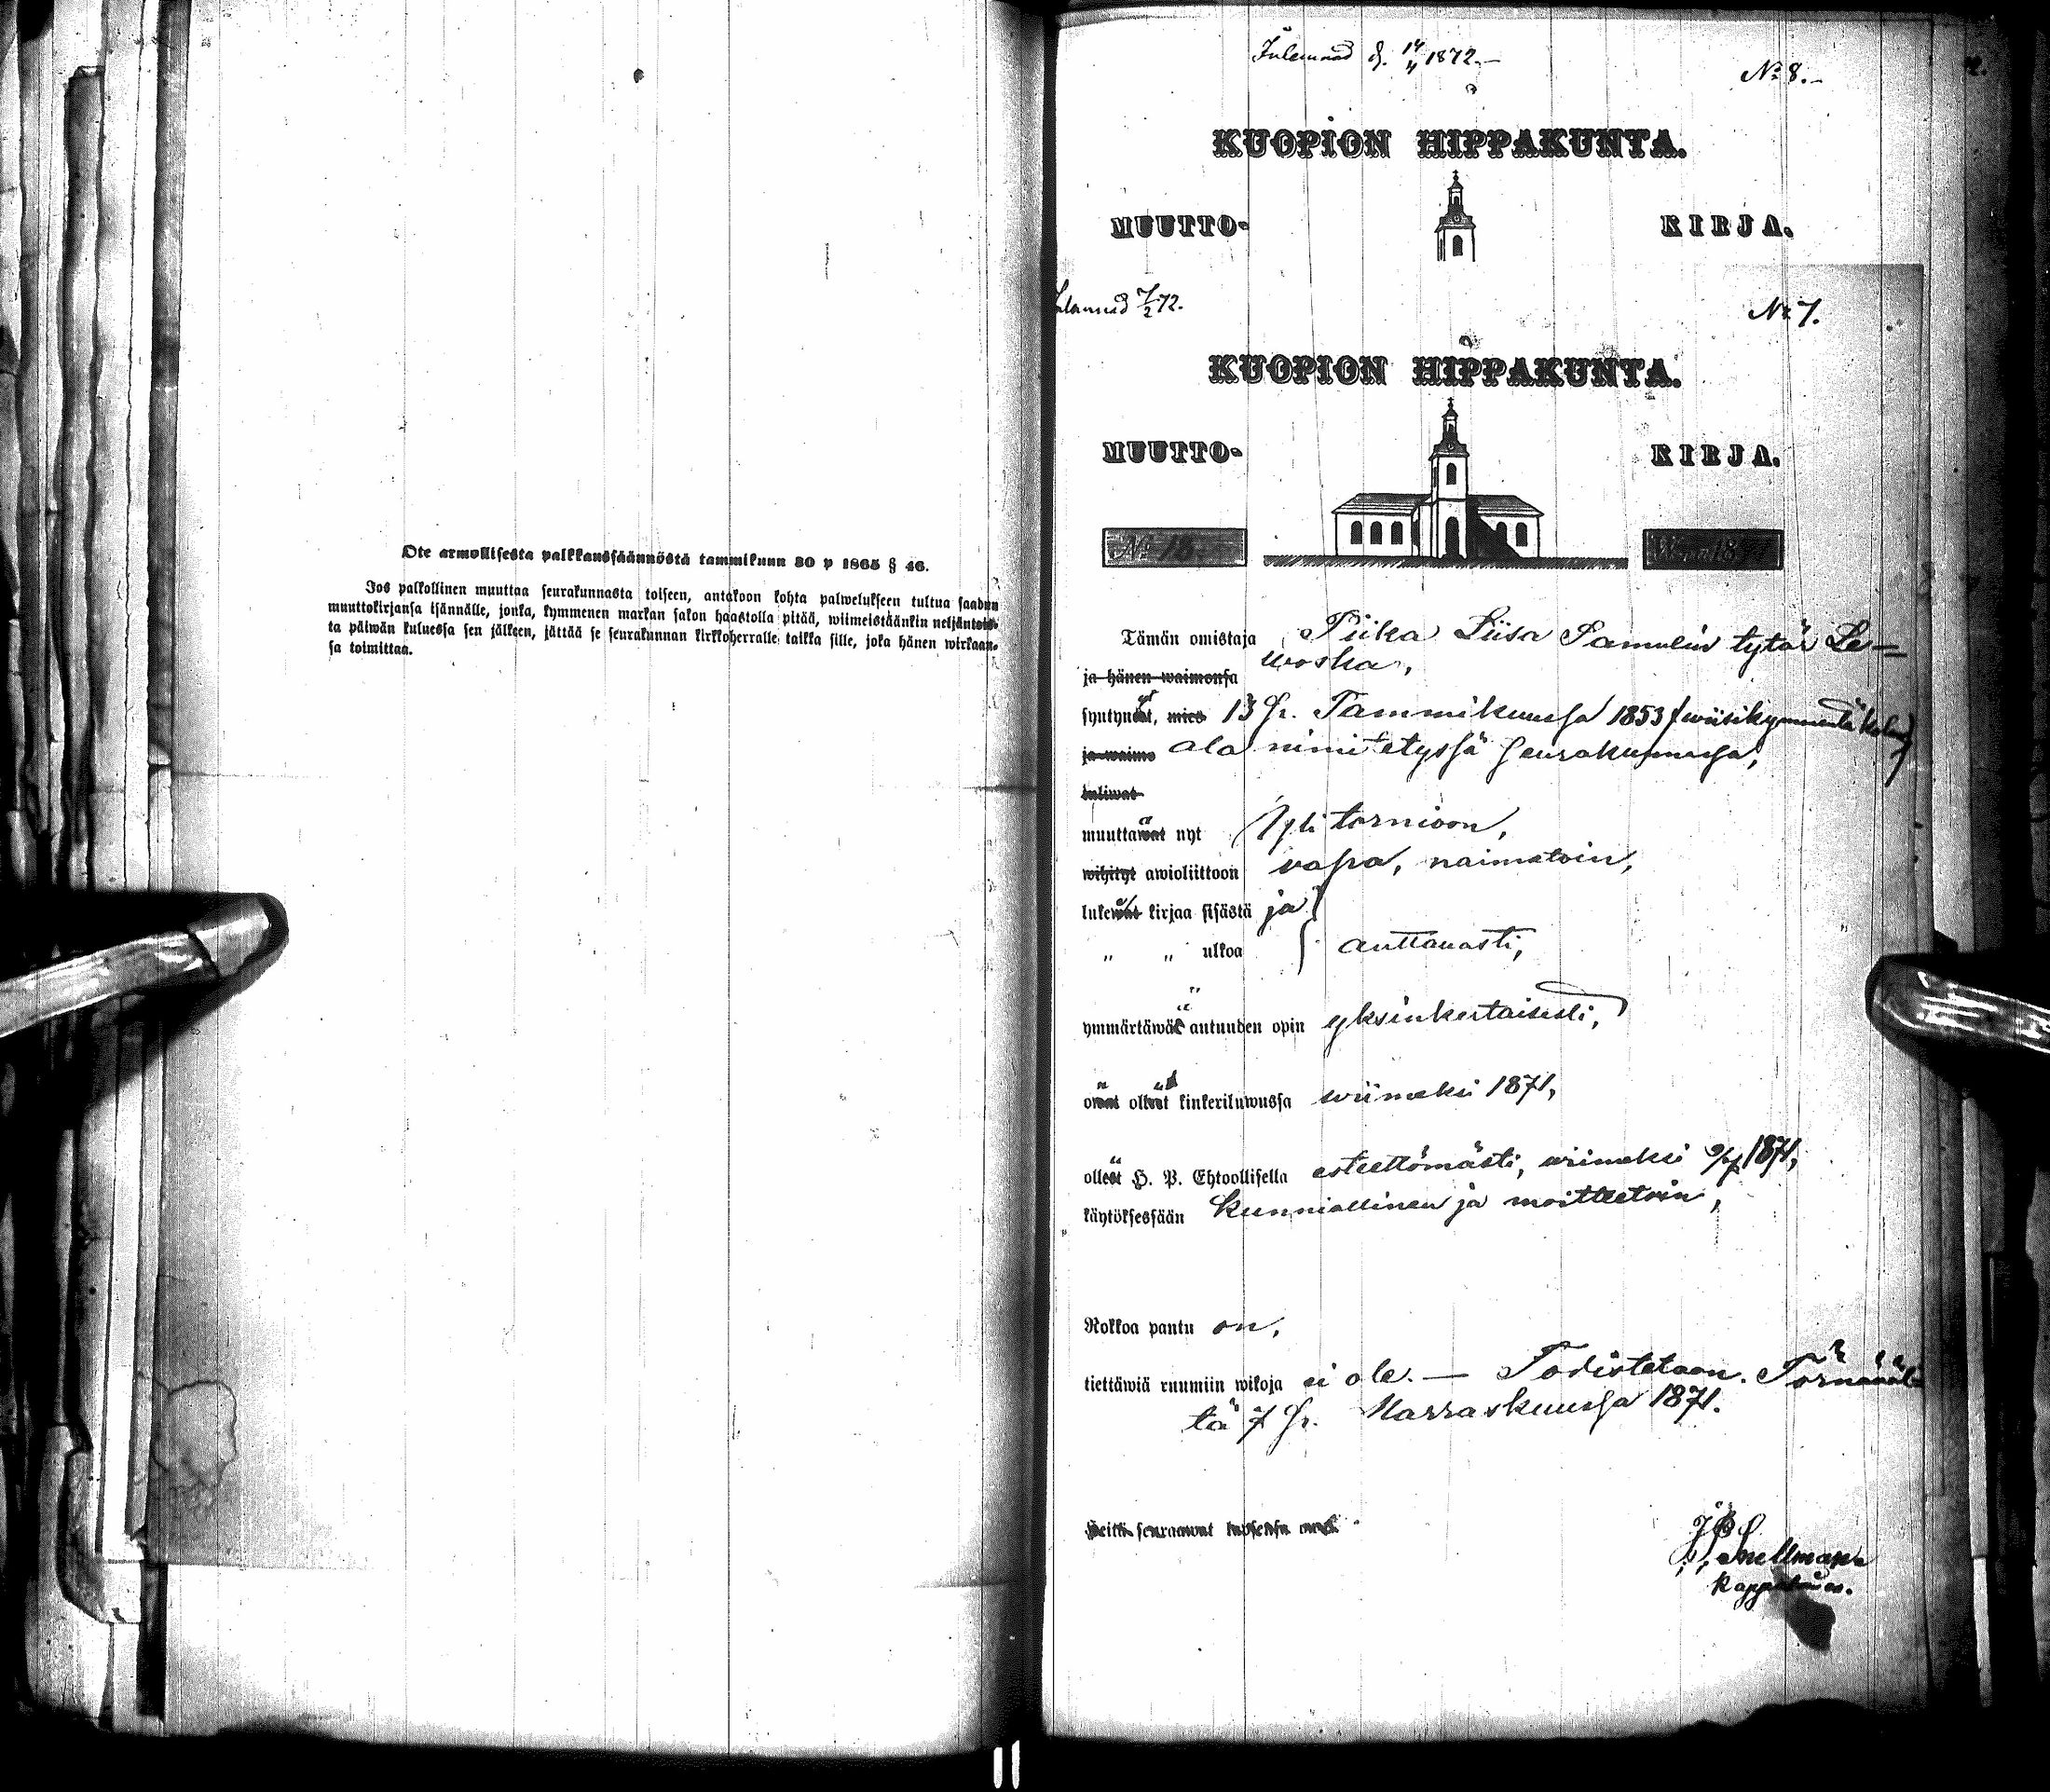 Ote armollisesta palkkaussäännöstä tammikuun 30 p 1865 § 46.
Jos palkollinen muuttaa seurakunnasta toiseen, antakoon kohta palwelukseen tultua saadun
muuttokirjansa isännälle, jonka, kymmenen markan sakon haastolla pitää, wiimeistäänkin neljäntois-
ta päiwän kuluessa sen jälkeen, jättää se seurakunnan kirkkoherralle taikka sille, joka hänen wirkaan-
sa toimittaa.
Inlemnad d. 14/4 1872.-
No 8.-
KUOPION HIPPAKUNTA.
MUUTTO- KIRJA.
Inlemnad 7/2 72.
No 7.
KUOPION HIPPAKUNTA.
MUUTTO- KIRJA.
No 18 Wnna 1871
Tämän omistaja Piika Liisa Samulin tytär Le-
ja hänen waimonsa woska,
syntynyt, mies 13 p. Tammikuussa 1853 (wiisikymmentä kolme)
ja waimo ala nimitetyssä seurakunnassa,
tuliwat
muuttawat nyt Yli tornioon,
wihityt awioliittoon vapa, naimatoin,
lukewat kirjaa sisästä ja
" " ulkoa auttavasti,
ymmärtäwät autuuden opin yksinkertaisesti,
owat olleet kinkeriluwussa wiimeksi 1871,
olleet H. P. Ehtoollisella esteettömästi, wiimeksi 9/7 1871,
käytöksessään kunniallinen ja moitteetoin,
Rokkoa pantu on,
tiettäwiä ruumiin wikoja ei ole. — Todistetaan. Törnäväl-
tä 7 p. Marraskuussa 1871.
Heitä seuraawat
J. Snellman
Kappalainen.